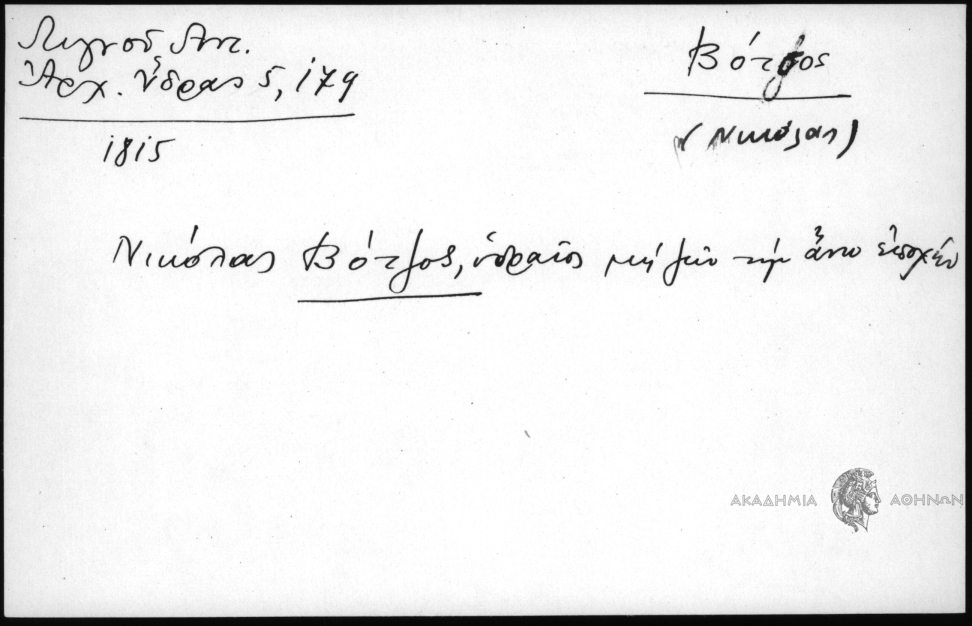 Λιγνού Αντ.
Ἀρχ. Ὕδρας 5, 179
1815
Βότζος
(Νικόλας)
Νικόλας Βότζος, ὑδραῖος μὴ ζῶν τὴν ἄνω ἐποχήν
ΑΚΑΔΗΜΙΑ ΑΘΗΝΩΝ